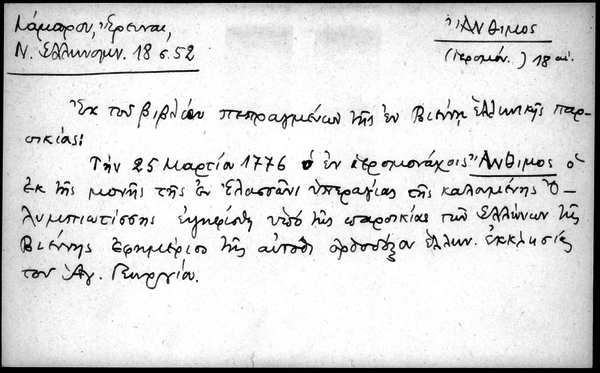 Λάμπρου, Ἔρευναι,
Ν. Ἑλληνομν. 18 σ. 52
Ἄνθιμος
(ἱερομόν.) 18 αἰ.
Ἐκ τοῦ βιβλίου πεπραγμένων τῆς ἐν Βιέννῃ ἑλληνικῆς παρ-
οικίας:
Τὴν 25 Μαρτίου 1776 ὁ ἐν ἱερομονάχοις Ἄνθιμος ὁ
ἐκ τῆς μονῆς τῆς ἐν Ἐλασσῶνι ὑπεραγίας τῆς καλουμένης Ὀ-
λυμπιωτίσσης ἐψηφίσθη ὑπὸ τῆς παροικίας τῶν Ἑλλήνων τῆς
Βιέννης ἐφημέριος τῆς αὐτόθι ὀρθοδόξου ἑλλην. ἐκκλησίας
τοῦ Ἁγ. Γεωργίου.